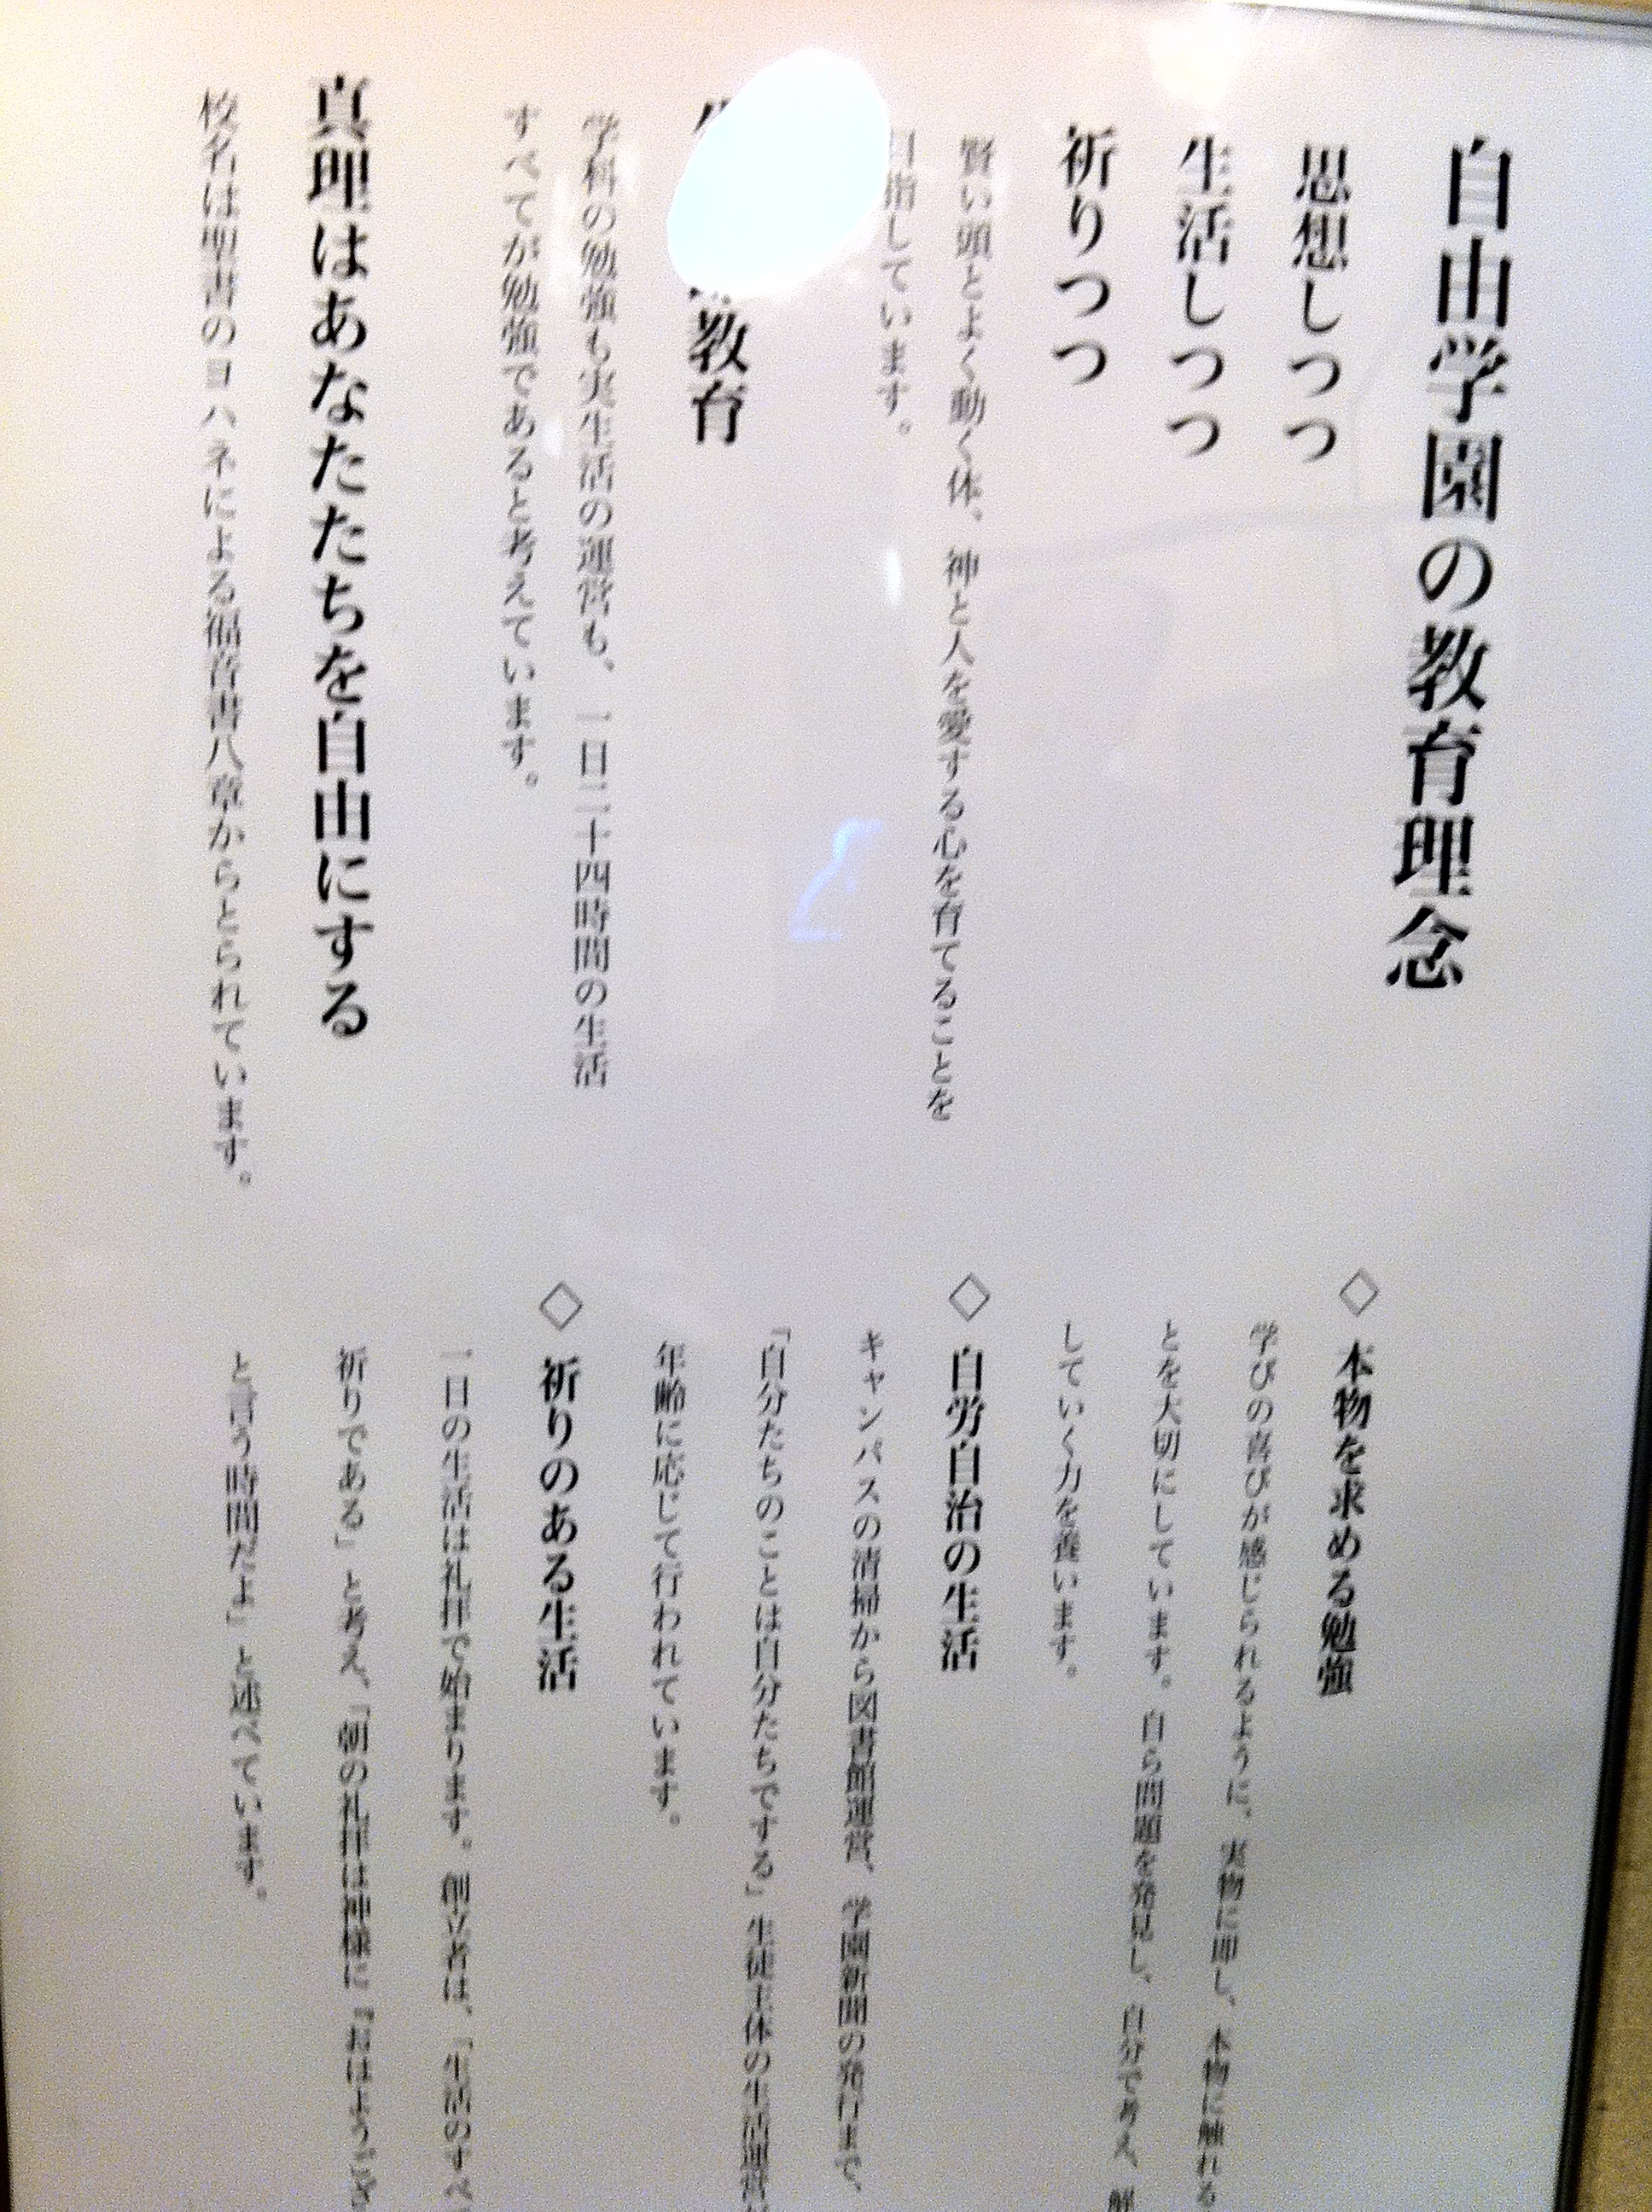 自由学園の教育理念
思想しつつ
生活しつつ
祈りつつ
賢い頭とよく動く体、神と人を愛する心を育てることを
目指しています。
教育
学科の勉強も実生活の運営も、一日二十四時間の生活
すべてが勉強であると考えています。
真理はあなたたちを自由にする
校名は聖書のヨハネによる福音書八章からとられています。
◇ 本物を求める勉強
学びの喜びが感じられるように、実物に即し、本物に触れる
とを大切にしています。自ら問題を発見し、自分で考え、解
していく力を養います。
◇ 自労自治の生活
キャンパスの清掃から図書館運営、学園新聞の発行まで、
「自分たちのことは自分たちでする」生徒主体の生活運営
年齢に応じて行われています。
◇ 祈りのある生活
一日の生活は礼拝で始まります。創立者は、「生活のすべ
祈りである」と考え、「朝の礼拝は神様に『おはようござ
と言う時間だよ」と述べています。